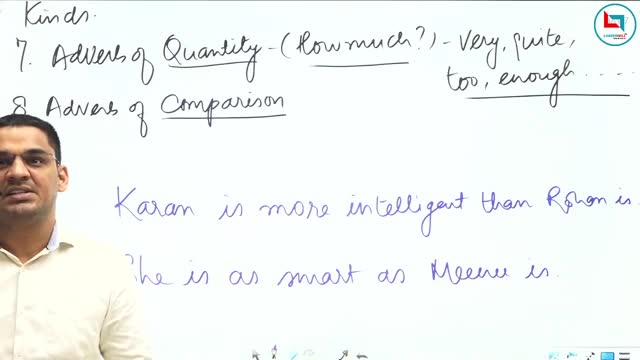 Kinds.
7. Adverbs of Quantity - (How much?) - Very, quite,
too, enough.....
8 Adverb of Comparison
Karan is more intelligent than Rohan is.
She is as smart as Meenu is.